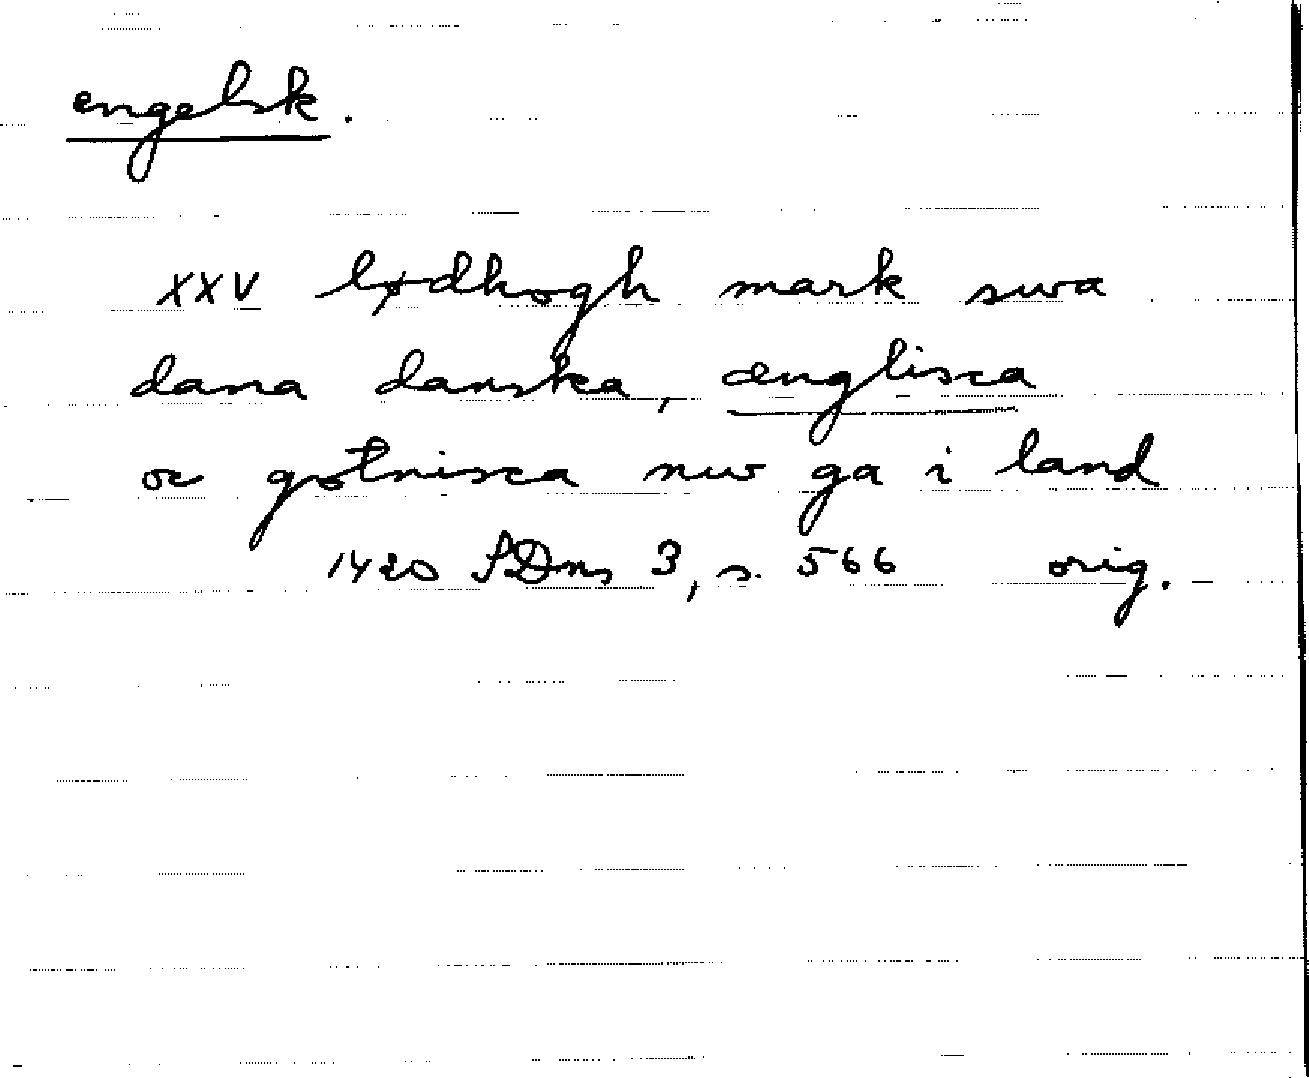 engelsk.
XXV lødhogh mark swa
dana danska, ænglisca
oc gotnisca nw ga i land
1420 SDns 3, s. 566 orig.